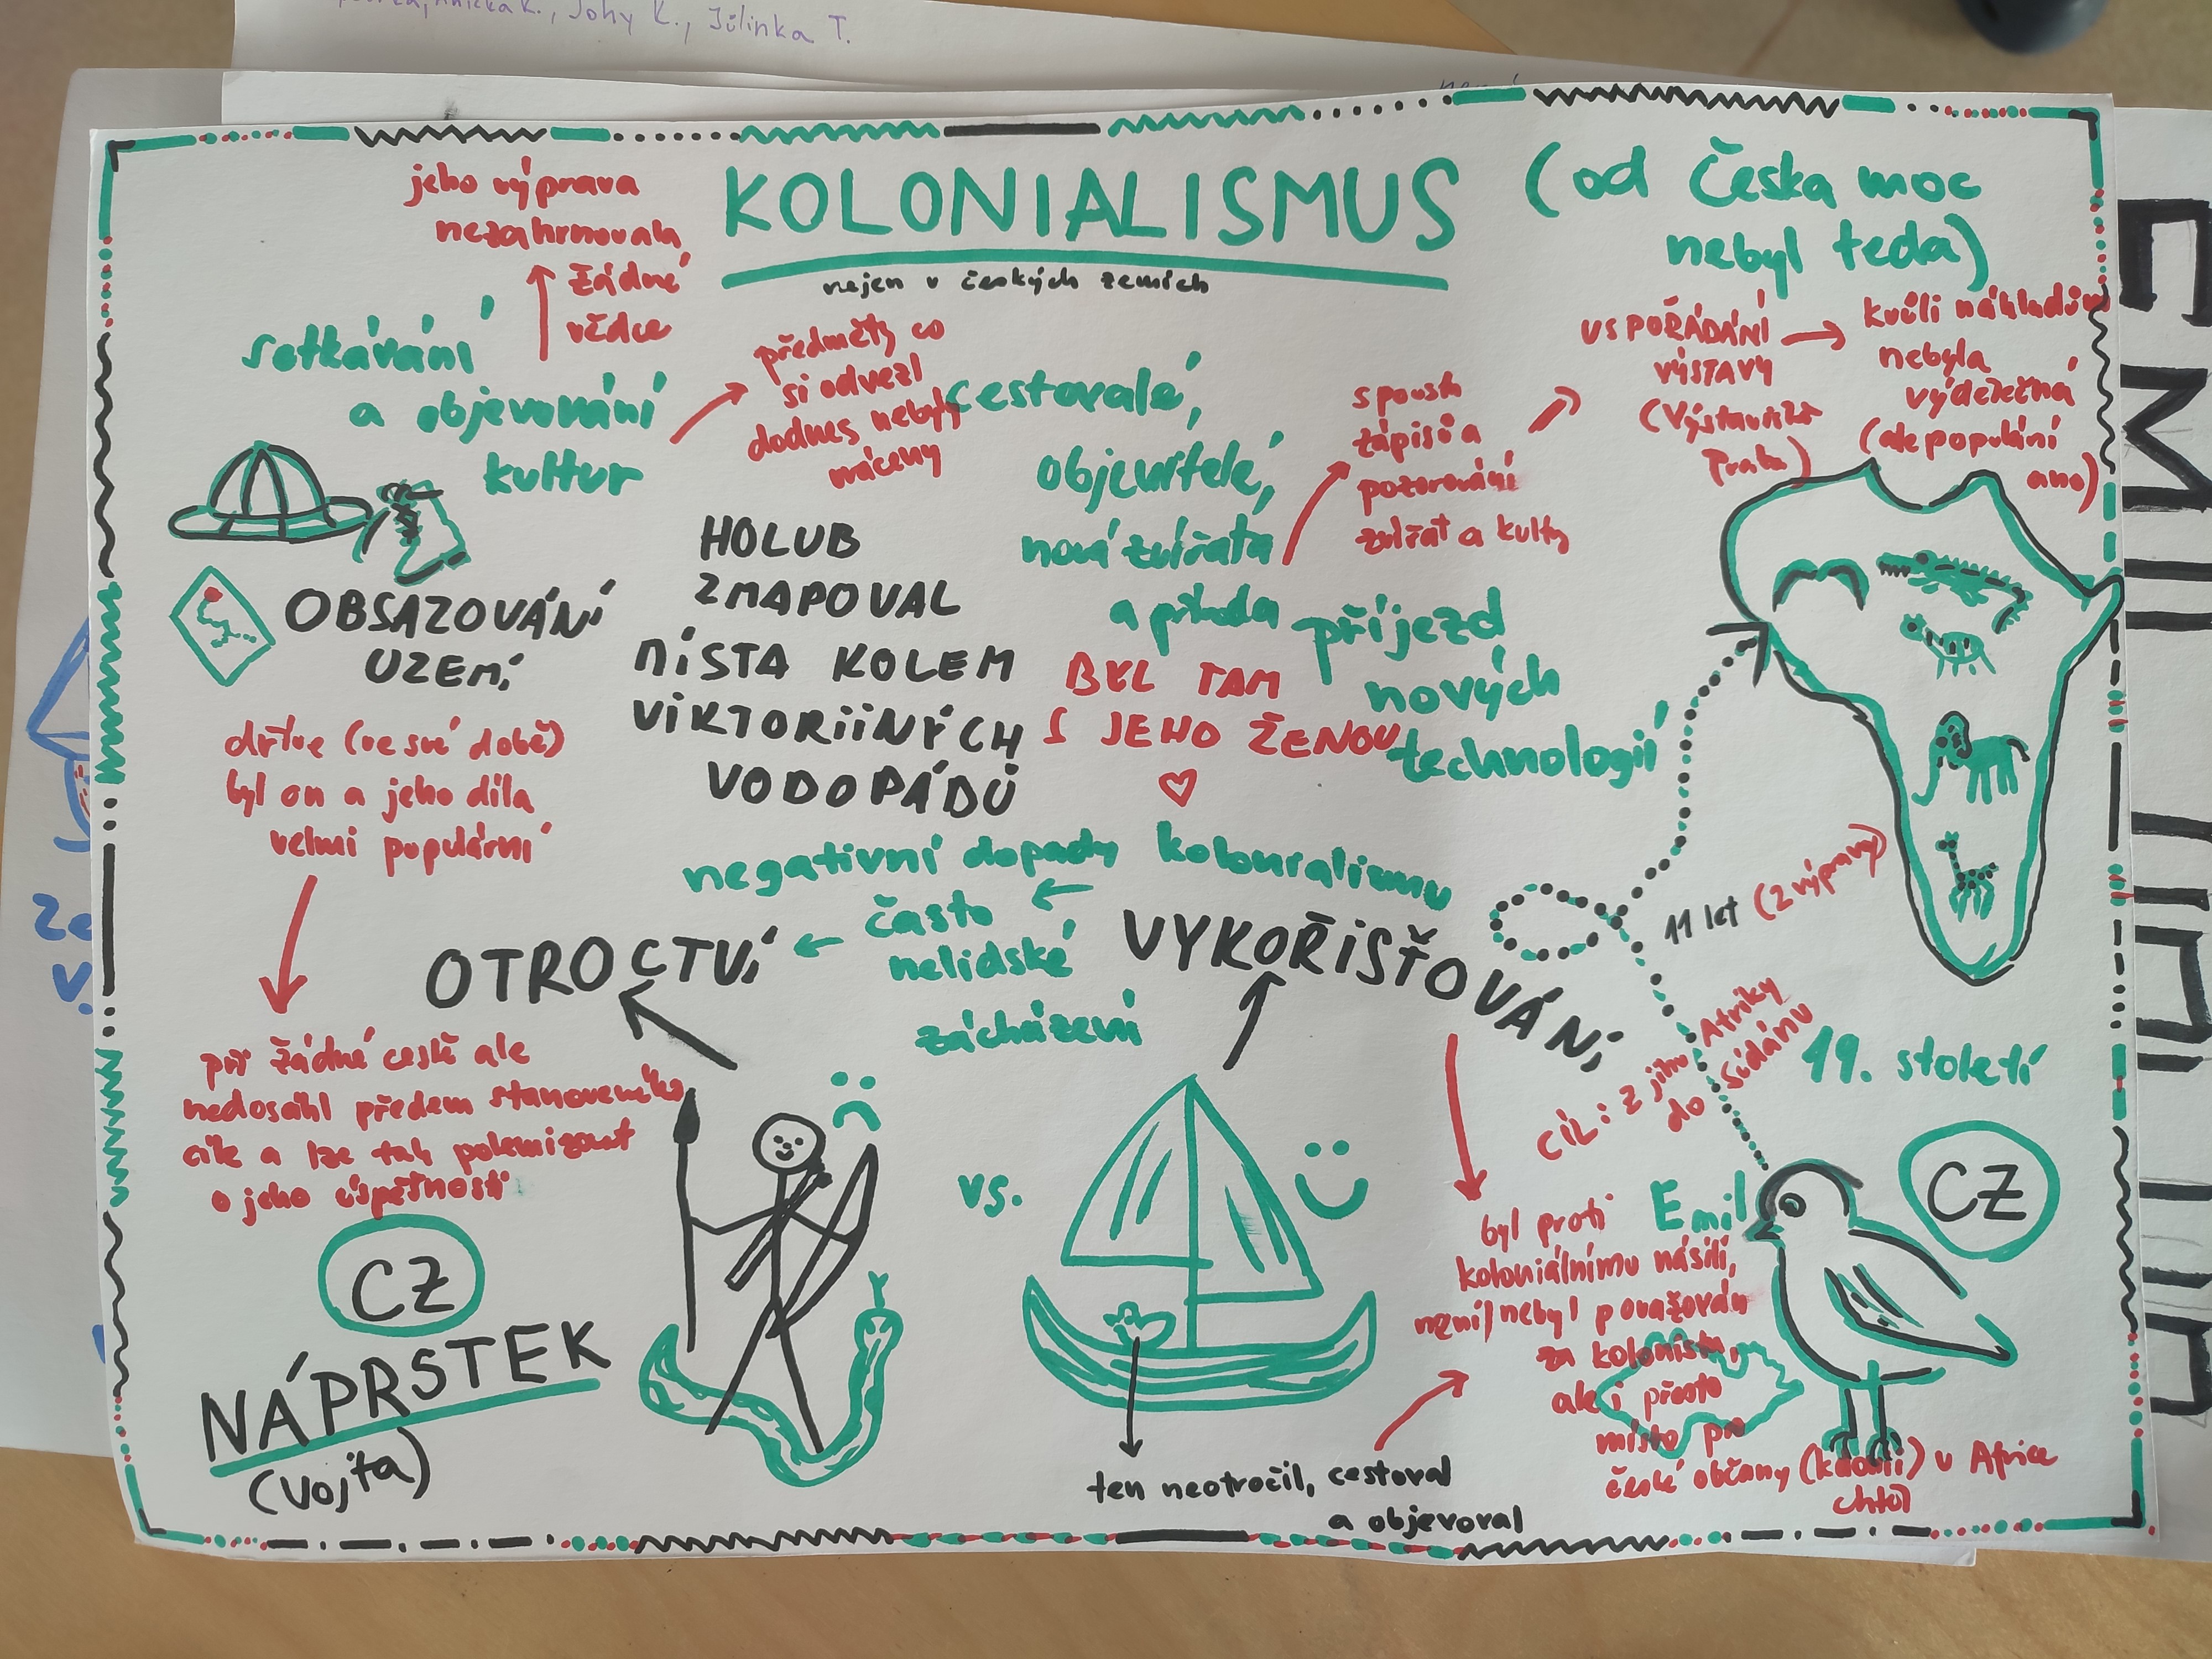 Johy K., Jůlinka T.
KOLONIALISMUS
nejen v českých zemích
(od Česka moc
nebyl teda)
jeho výprava
nezahrnovala
žádné
vědce
setkávání
a objevování
kultur
předměty co
si odvezl
dodnes nebyly
cestovalé,
objevitelé,
nová zvířata
a příroda
spousta
zápisů a
pozorování
zvířat a kultur
USPOŘÁDÁNÍ
VÝSTAVY
(Výstaviště
Praha)
kvůli nákladům
nebyla
výdělečná
(ale populární
ano)
HOLUB
ZMAPOVAL
MÍSTA KOLEM
VIKTORIINÝCH
VODOPÁDŮ
OBSAZOVÁNÍ
UZEMÍ
BYL TAM
S JEHO ŽENOU
příjezd
nových
technologií
dříve (ve své době)
byl on a jeho díla
velmi populární
při žádné cestě ale
nedosáhl předem stanoveného
cíle a lze tak polemizovat
o jeho úspěšnosti
negativní dopady kolonialismu
často
nelidské
zácházení
OTROCTVÍ
VYKOŘISŤOVÁNÍ
11 let (2 výpravy)
CÍL: z jihu Afriky
do Súdánu
19. století
CZ
Emil
byl proti
koloniálnímu násilí,
není/nebyl považován
za kolonistu,
ale i přesto
místo pro
české občany (kdoví) v Africe
chtěl
vs.
CZ
NÁPRSTEK
(Vojta)
ten neotročil, cestoval
a objevoval
EMIL